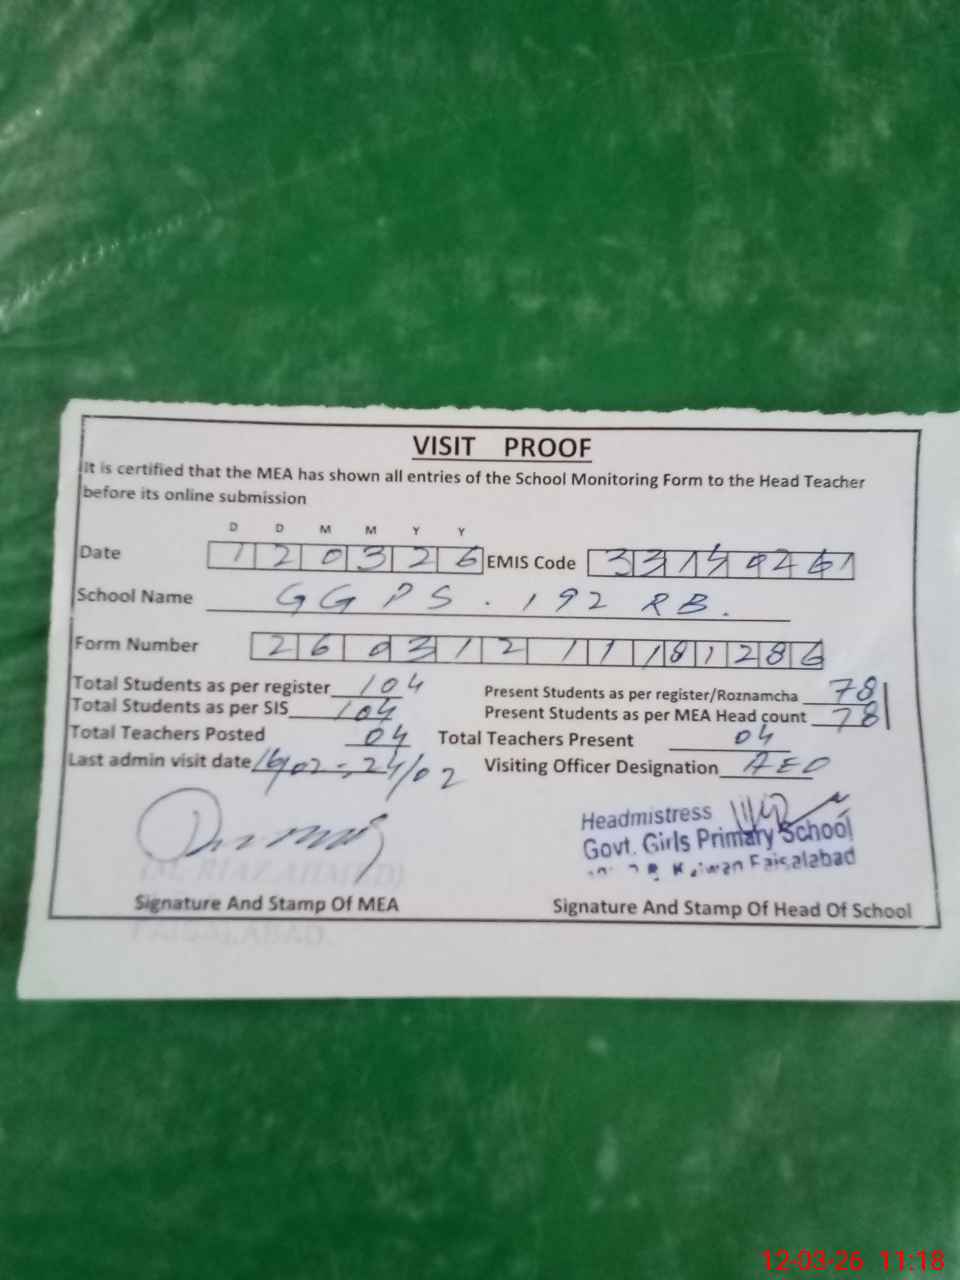 VISIT PROOF
It is certified that the MEA has shown all entries of the School Monitoring Form to the Head Teacher
before its online submission
D D M M Y Y
Date 120326 EMIS Code 33140261
School Name GGPS. 192 RB.
Form Number 260312 11181286
Total Students as per register 104 Present Students as per register/Roznamcha 78
Total Students as per SIS 104 Present Students as per MEA Head count 78
Total Teachers Posted 04 Total Teachers Present 04
Last admin visit date 16/02 - 24/02 Visiting Officer Designation AEO
Headmistress
Govt. Girls Primary School
Faisalabad
(M. RIAZ AHMED)
Signature And Stamp Of MEA Signature And Stamp Of Head Of School
FAISALABAD.
12-03-26 11:18